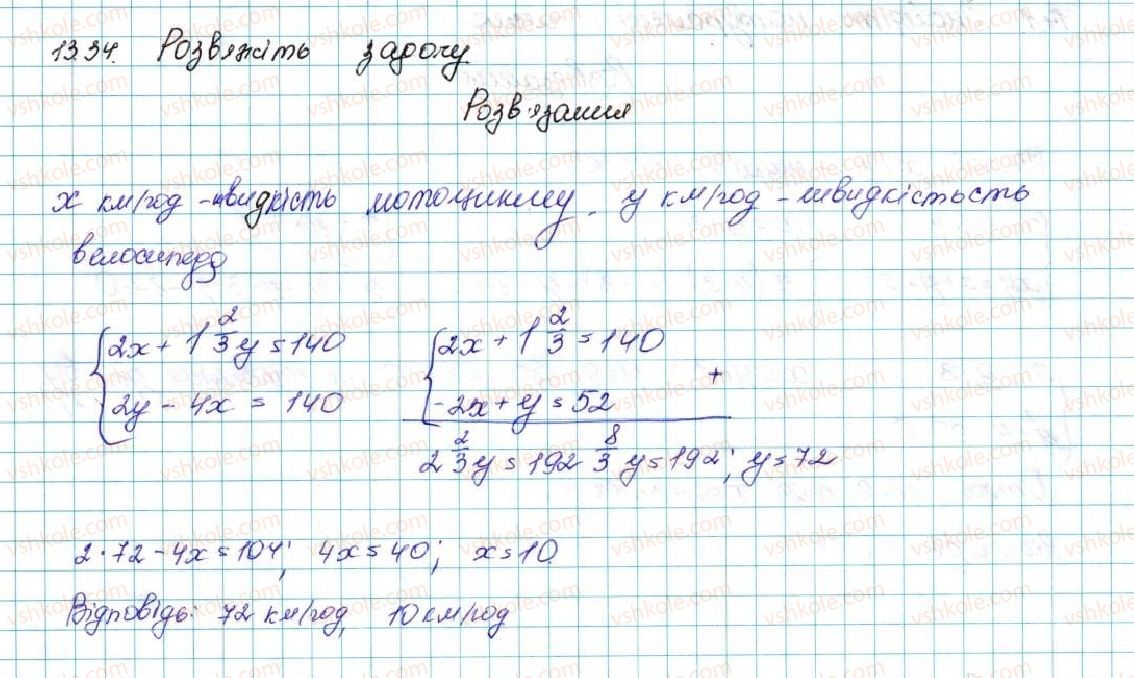 13.34. Розв'яжіть задачу.
Розв'язання
х км/год - швидкість мотоциклу. у км/год - швидкістьость
велосипеда
{2x + 1 2/3 y = 140 {2x + 1 2/3 = 140
{2y - 4x = 140 {-2x + y = 52 +
2 2/3 y = 192 8/3 y = 192; y = 72
2·72 - 4x = 104; 4x = 40; x = 10
Відповідь: 72 км/год, 10 км/год
vshkole.com